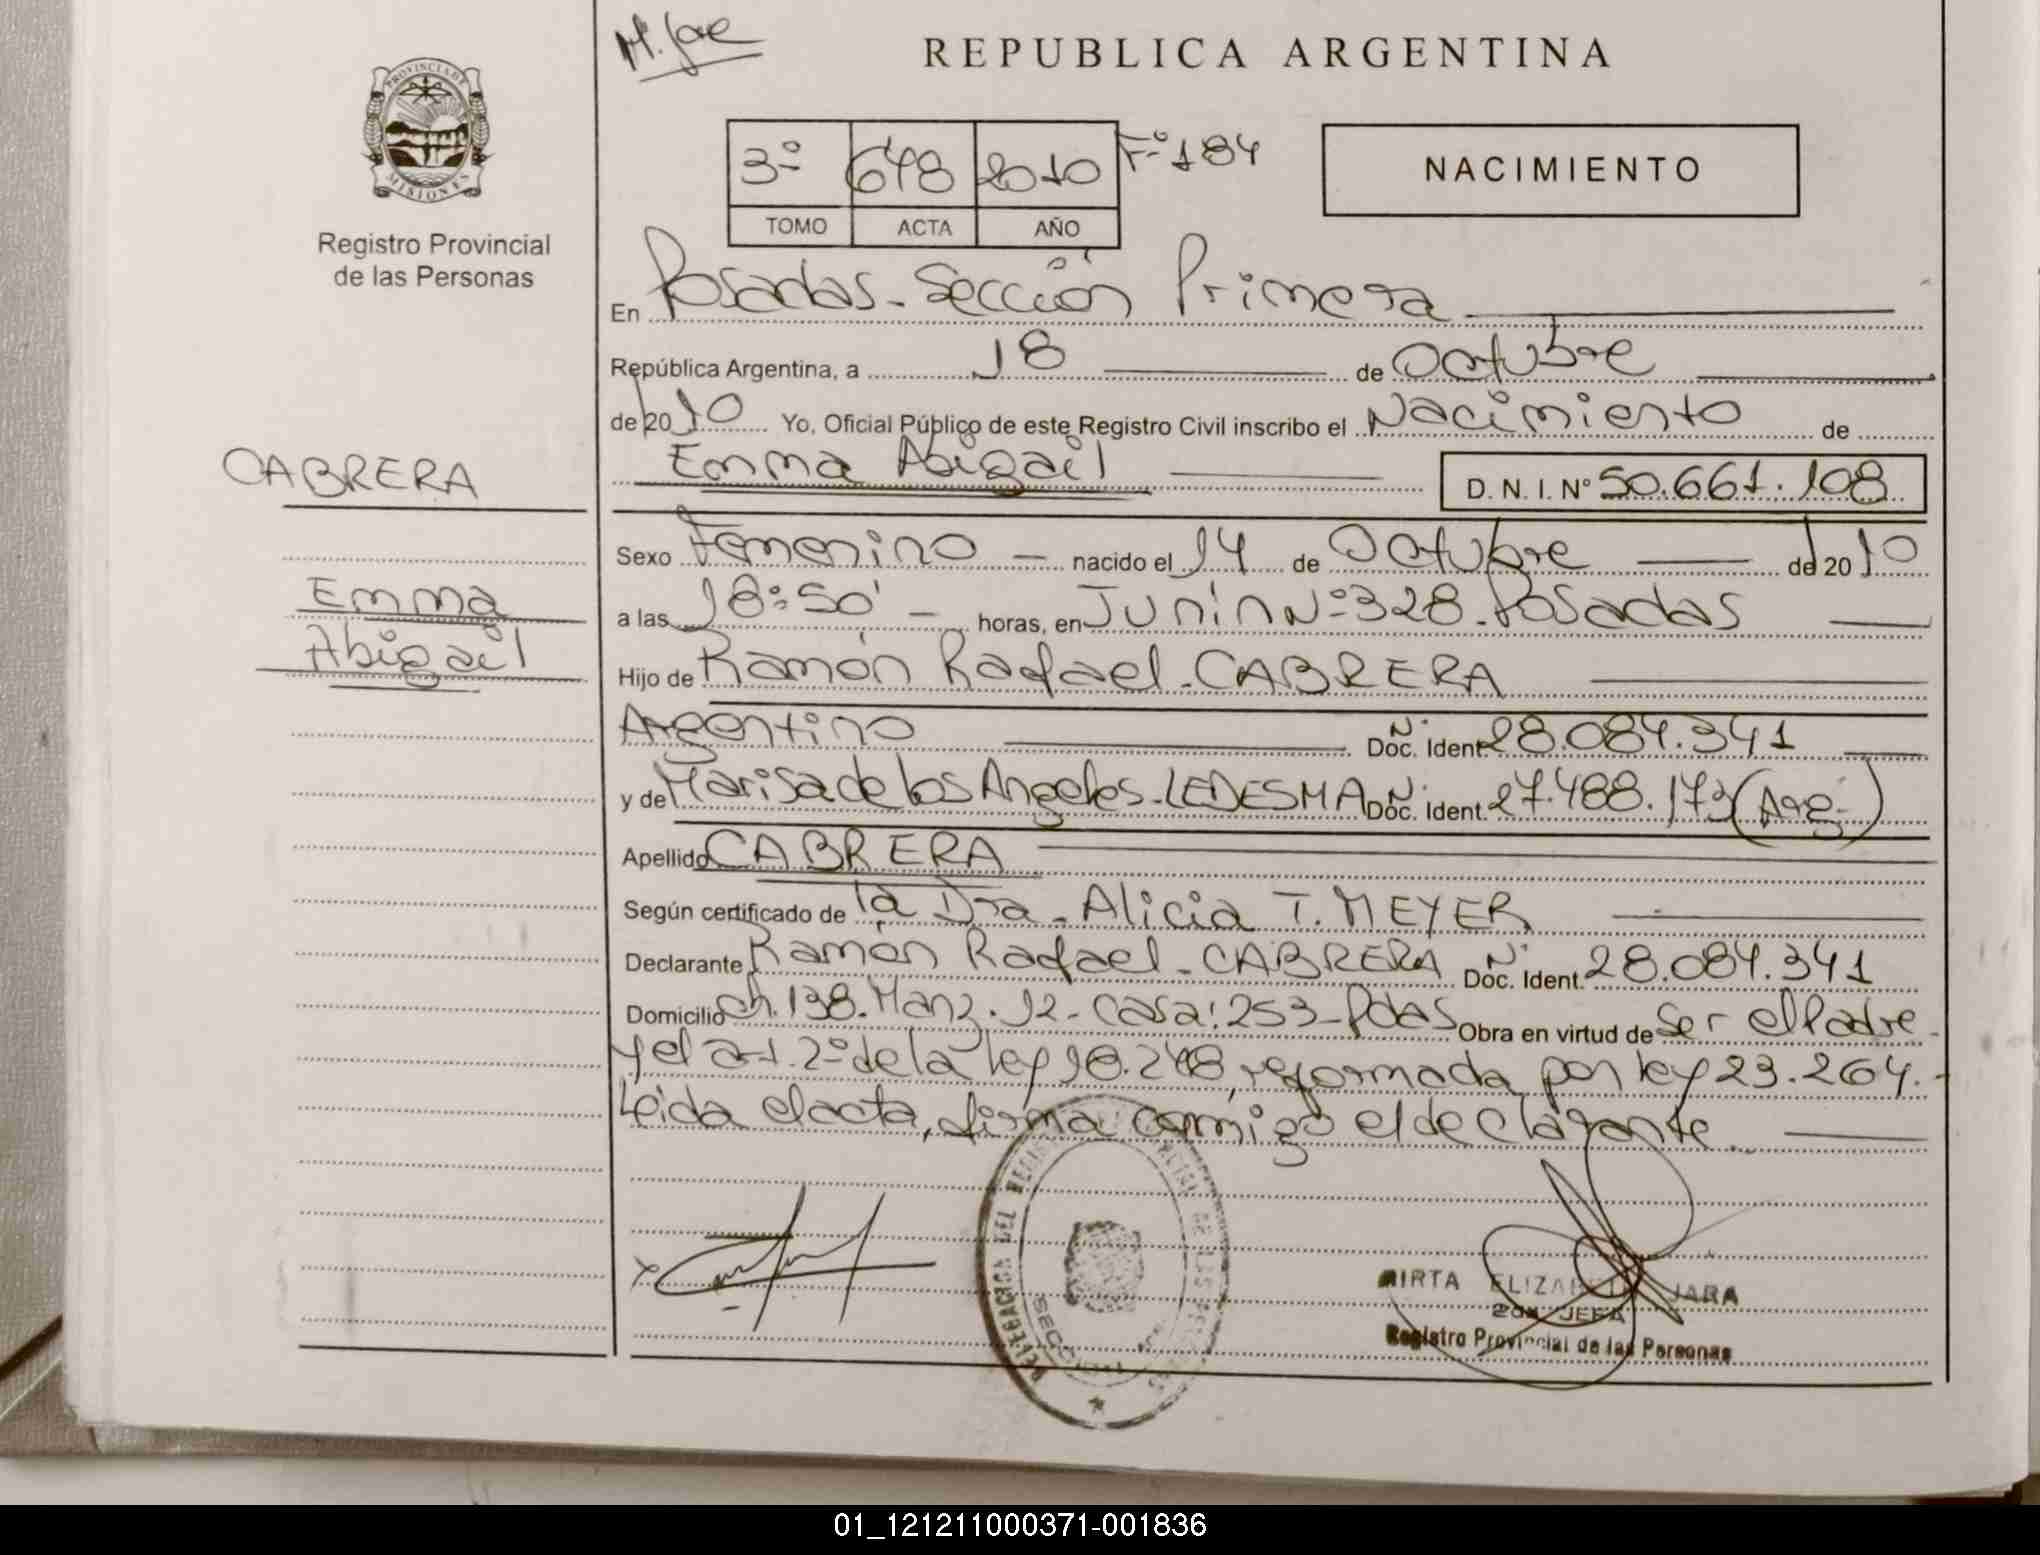 M. Jose
REPUBLICA ARGENTINA
PROVINCIA DE
MISIONES
Registro Provincial
de las Personas
3º 648 2010 Fº 184
TOMO ACTA AÑO
NACIMIENTO
En Posadas - Sección Primera
República Argentina, a 18 de Octubre
de 2010 Yo, Oficial Público de este Registro Civil inscribo el Nacimiento de
Emma Abigail D. N. I. Nº 50.661.108
CABRERA
Emma
Abigail
Sexo Femenino nacido el 14 de Octubre de 2010
a las 18:50' horas, en Junín Nº 328. Posadas
Hijo de Ramón Rafael - CABRERA
Argentino Doc. Ident. Nº 28.084.341
y de Marisa de los Angeles - LEDESMA Doc. Ident. Nº 27.488.173 (Arg.)
Apellido CABRERA
Según certificado de la Dra. Alicia T. MEYER
Declarante Ramón Rafael - CABRERA Doc. Ident. Nº 28.084.341
Domicilio Ch. 138. Manz. 12 - Casa: 253 - Pdas Obra en virtud de Ser el Padre
y el art. 2º de la ley 18.248, reformada por ley 23.264.-
Leida el acta, firma conmigo el declarante.
DELEGACION DEL
MIRTA ELIZABETH JARA
2da JEFA
Registro Provincial de las Personas
01_121211000371-001836